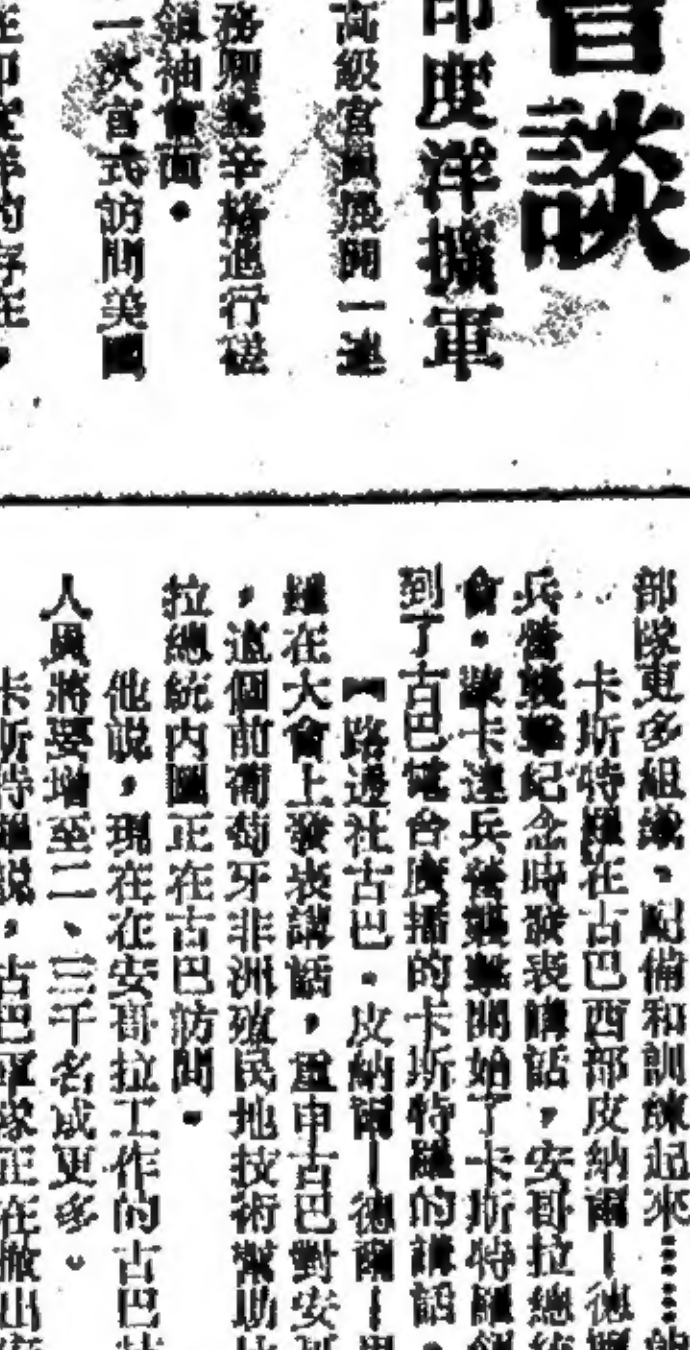 會談
印度洋擴軍
高級官員展開一連
務卿基辛格進行磋
領袖會面。
一次官式訪問美國
在印度洋的存在，
部隊更多組織、配備和訓練起來……
卡斯特羅在古巴西部皮納爾—德
兵營襲擊紀念時發表講話，安哥拉總統
會。蒙卡達兵營襲擊開始了卡斯特羅
到了古巴電台廣播的卡斯特羅的講話。
路透社古巴。皮納爾—德爾—里
羅在大會上發表講話，重申古巴對安哥
，這個前葡萄牙非洲殖民地技術幫助
拉總統內圖正在古巴訪問。
他說，現在在安哥拉工作的古巴技
人員將要增至二、三千名或更多。
卡斯特羅說，古巴軍隊正在撤出安